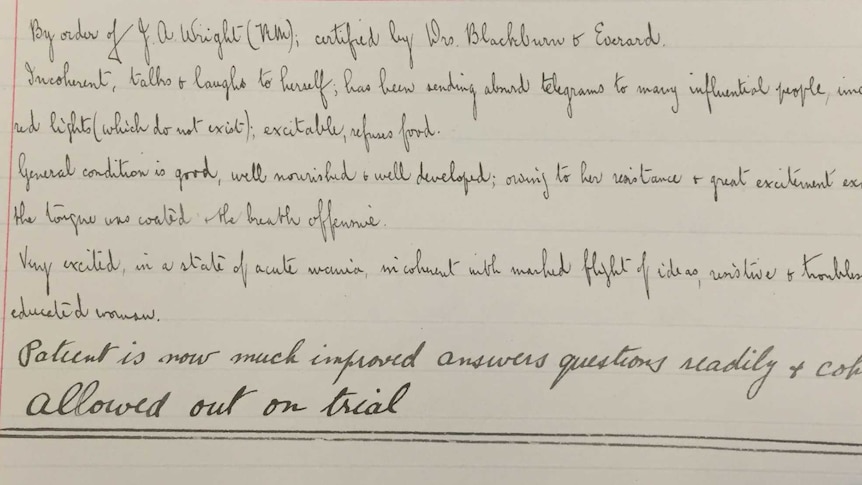 By order of J. A Wright (RM); certified by Drs. Blackburn & Everard.
Incoherent, talks & laughs to herself; has been sending absurd telegrams to many influential people, ima
red lights (which do not exist); excitable, refuses food.
General condition is good, well nourished & well developed; owing to her resistance & great excitement ex
the tongue was coated & the breath offensive.
Very excited, in a state of acute mania, incoherent with marked flight of ideas, resistive & troubles
educated woman.
Patient is now much improved answers questions readily & coh
allowed out on trial